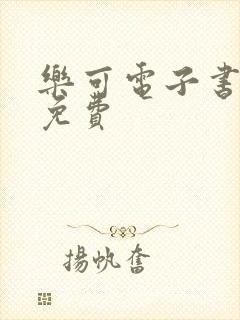 樂可電子書
免費
揚帆奮